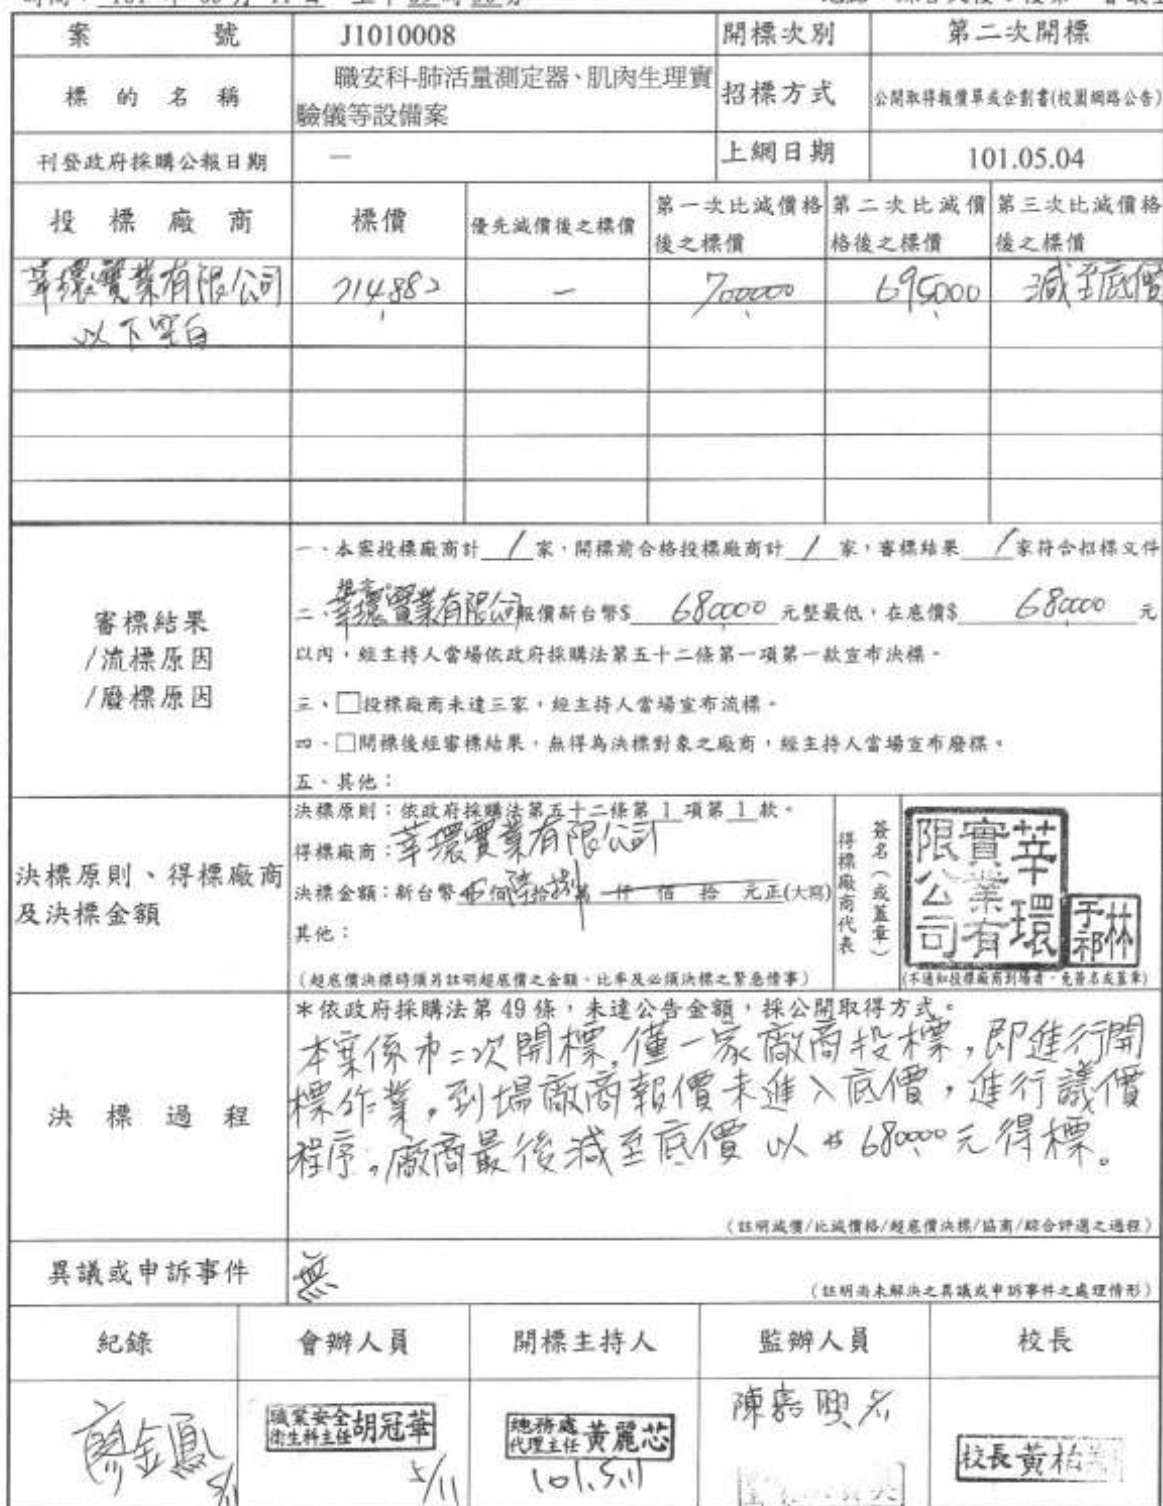 案 號 J1010008 開標次別 第二次開標
標的名稱 職安科-肺活量測定器、肌肉生理實驗儀等設備案 招標方式 公開取得報價單或企劃書(校園網路公告)
刊登政府採購公報日期 — 上網日期 101.05.04
投標廠商 標價 優先減價後之標價 第一次比減價格後之標價 第二次比減價格後之標價 第三次比減價格後之標價
莘環實業有限公司 714,882 — 700,000 695,000 減至底價
以下空白
審標結果
/流標原因
/廢標原因
一、本案投標廠商計 1 家,開標前合格投標廠商計 1 家,審標結果 1 家符合招標文件
二、莘環實業有限公司報價新台幣$ 680,000 元整最低,在底價$ 680,000 元
以內,經主持人當場依政府採購法第五十二條第一項第一款宣布決標。
三、□投標廠商未達三家,經主持人當場宣布流標。
四、□開標後經審標結果,無得為決標對象之廠商,經主持人當場宣布廢標。
五、其他:
決標原則、得標廠商
及決標金額
決標原則:依政府採購法第五十二條第 1 項第 1 款。
得標廠商:莘環實業有限公司
決標金額:新台幣 佰陸拾捌萬 仟 佰 拾 元正(大寫)
其他:
(超底價決標時須另註明超底價之金額、比率及必須決標之緊急情事)
得標廠商代表
簽名(或蓋章)
莘環實業有限公司
林于祁
(不通知投標廠商到場者,免簽名或蓋章)
決標過程
*依政府採購法第49條,未達公告金額,採公開取得方式。
本案係第二次開標,僅一家廠商投標,即進行開
標作業,到場廠商報價未進入底價,進行議價
程序,廠商最後減至底價 以$680,000元得標。
(註明減價/比減價格/超底價決標/協商/綜合評選之過程)
異議或申訴事件 無
(註明尚未解決之異議或申訴事件之處理情形)
紀錄 會辦人員 開標主持人 監辦人員 校長
廖金鳳 5/11
職業安全衛生科主任 胡冠華 5/11
總務處代理主任 黃麗芯 101.5.11
陳嘉興
校長 黃柏